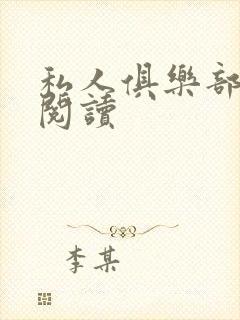 私人俱樂部
閱讀
李某